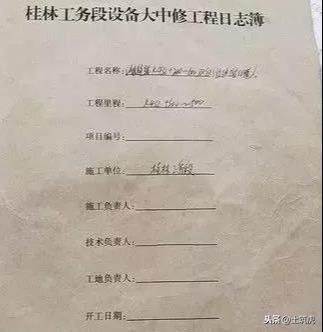 桂林工务段设备大中修工程日志簿
工程名称：
工程里程：
项目编号：
施工单位：桂林
施工负责人：
技术负责人：
工地负责人：
开工日期：
头条@土筑虎